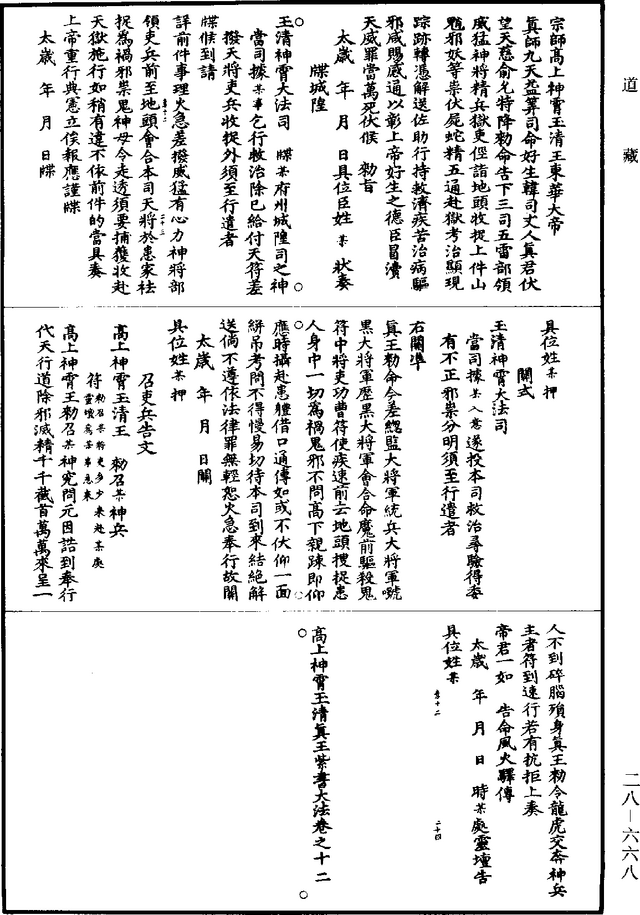 道藏
宗師高上神霄玉清王東華大帝
真師九天益筭司命好生韓司丈人真君伏
望天慈俞允特降勑命告下三司五雷部領
威猛神將精兵獄吏徑詣地頭收捉上件山
魈邪妖等祟伏屍蛇精五通赴獄考治顯現
踪跡轉憑解送佐助行持救濟疾苦治病驅
邪咸賜感通以彰上帝好生之德臣冒瀆
天威罪當萬死伏候 勑旨
太歲 年 月 日具位臣姓 某 狀奏
牒城隍
玉清神霄大法司 牒某府州城隍司之神
當司據某事乞行救治除已給付天符差
撥天將吏兵收捉外須至行遣者
牒候到請
詳前件事理火急差撥威猛有心力神將部
領吏兵前至地頭會合本司天將於患家祛
捉為禍邪祟鬼神毋令走透須要捕獲收赴
天獄施行如稍有違不依前件的當具奏
上帝重行典憲立俟報應謹牒
太歲 年 月 日牒
具位姓某押
關式
玉清神霄大法司
當司據某入意遂投本司救治尋驗得委
有不正邪祟分明須至行遣者
右關準
真王勑命今差總監大將軍統兵大將軍號
黑大將軍歷黑大將軍會合命魔前驅殺鬼
符中將吏功曹符使疾速前去地頭搜捉患
人身中一切為禍鬼邪不問高下親踈即仰
應時攝赴患軆借口通傳如或不伏仰一面
絣吊考問不得慢易切待本司到來結絕解
送倘不遵依法律罪無輕恕火急奉行故關
太歲 年 月 日關
具位姓某押
召吏兵告文
高上神霄玉清王 勑召某神兵
符 勑召某將吏多少來赴某處
靈壇為某事急來
高上神霄王勑召某神究問元因誥到奉行
代天行道除邪滅精千千截首萬萬來呈一
人不到碎腦殞身真王勑令龍虎交奔神兵
主者符到速行若有抗拒上奏
帝君一如 告命風火驛傳
太歲 年 月 日 時某處靈壇告
具位姓某
高上神霄玉清真王紫書大法卷之十二
二八－六六八